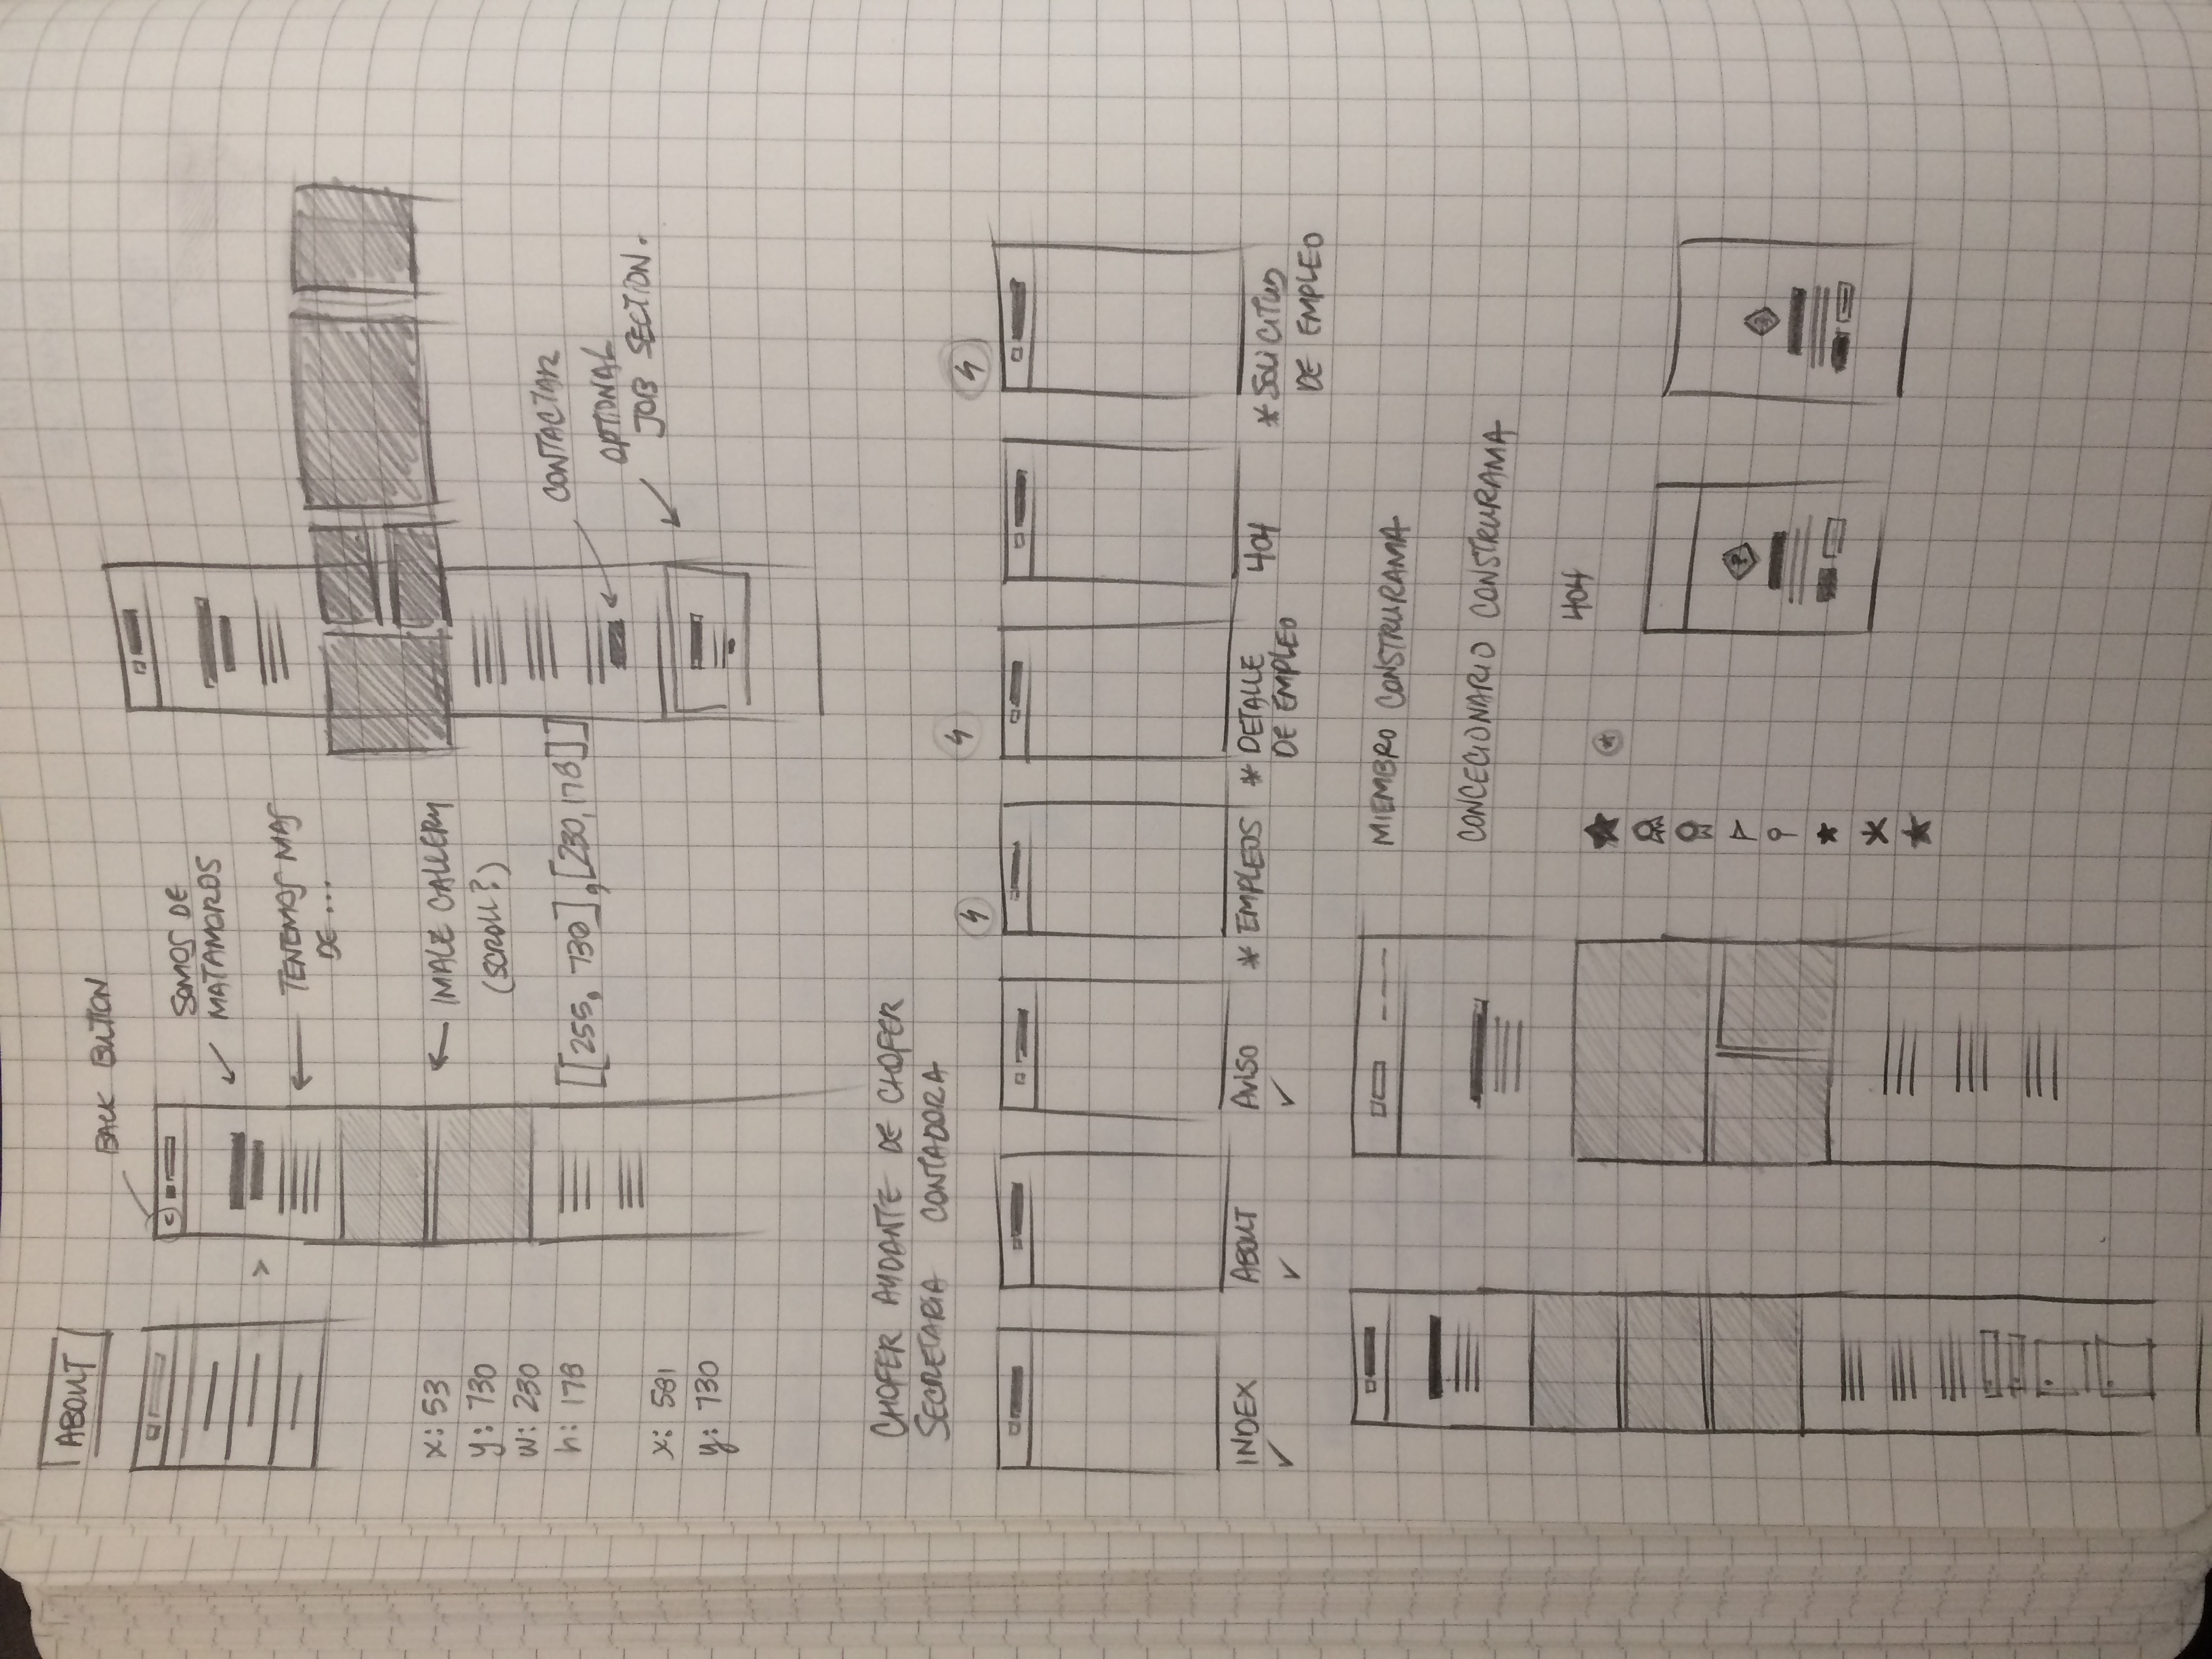 ABOUT
BACK BUTTON
<
SOMOS DE
MATAMOROS
>
TENEMOS MAS
DE ...
IMAGE GALLERY
(SCROLL?)
x: 53
y: 730
w: 230
h: 178
[[255, 730],[230,178]]
x: 581
y: 730
CONTACTAR
OPTIONAL
JOB SECTION.
CHOFER AYUDANTE DE CHOFER
SECRETARIA CONTADORA
INDEX
✓
ABOUT
✓
AVISO
✓
* EMPLEOS
* DETALLE
DE EMPLEO
404
* SOLICITUD
DE EMPLEO
MIEMBRO CONSTRURAMA
CONCECIONARIO CONSTRURAMA
404
?
?